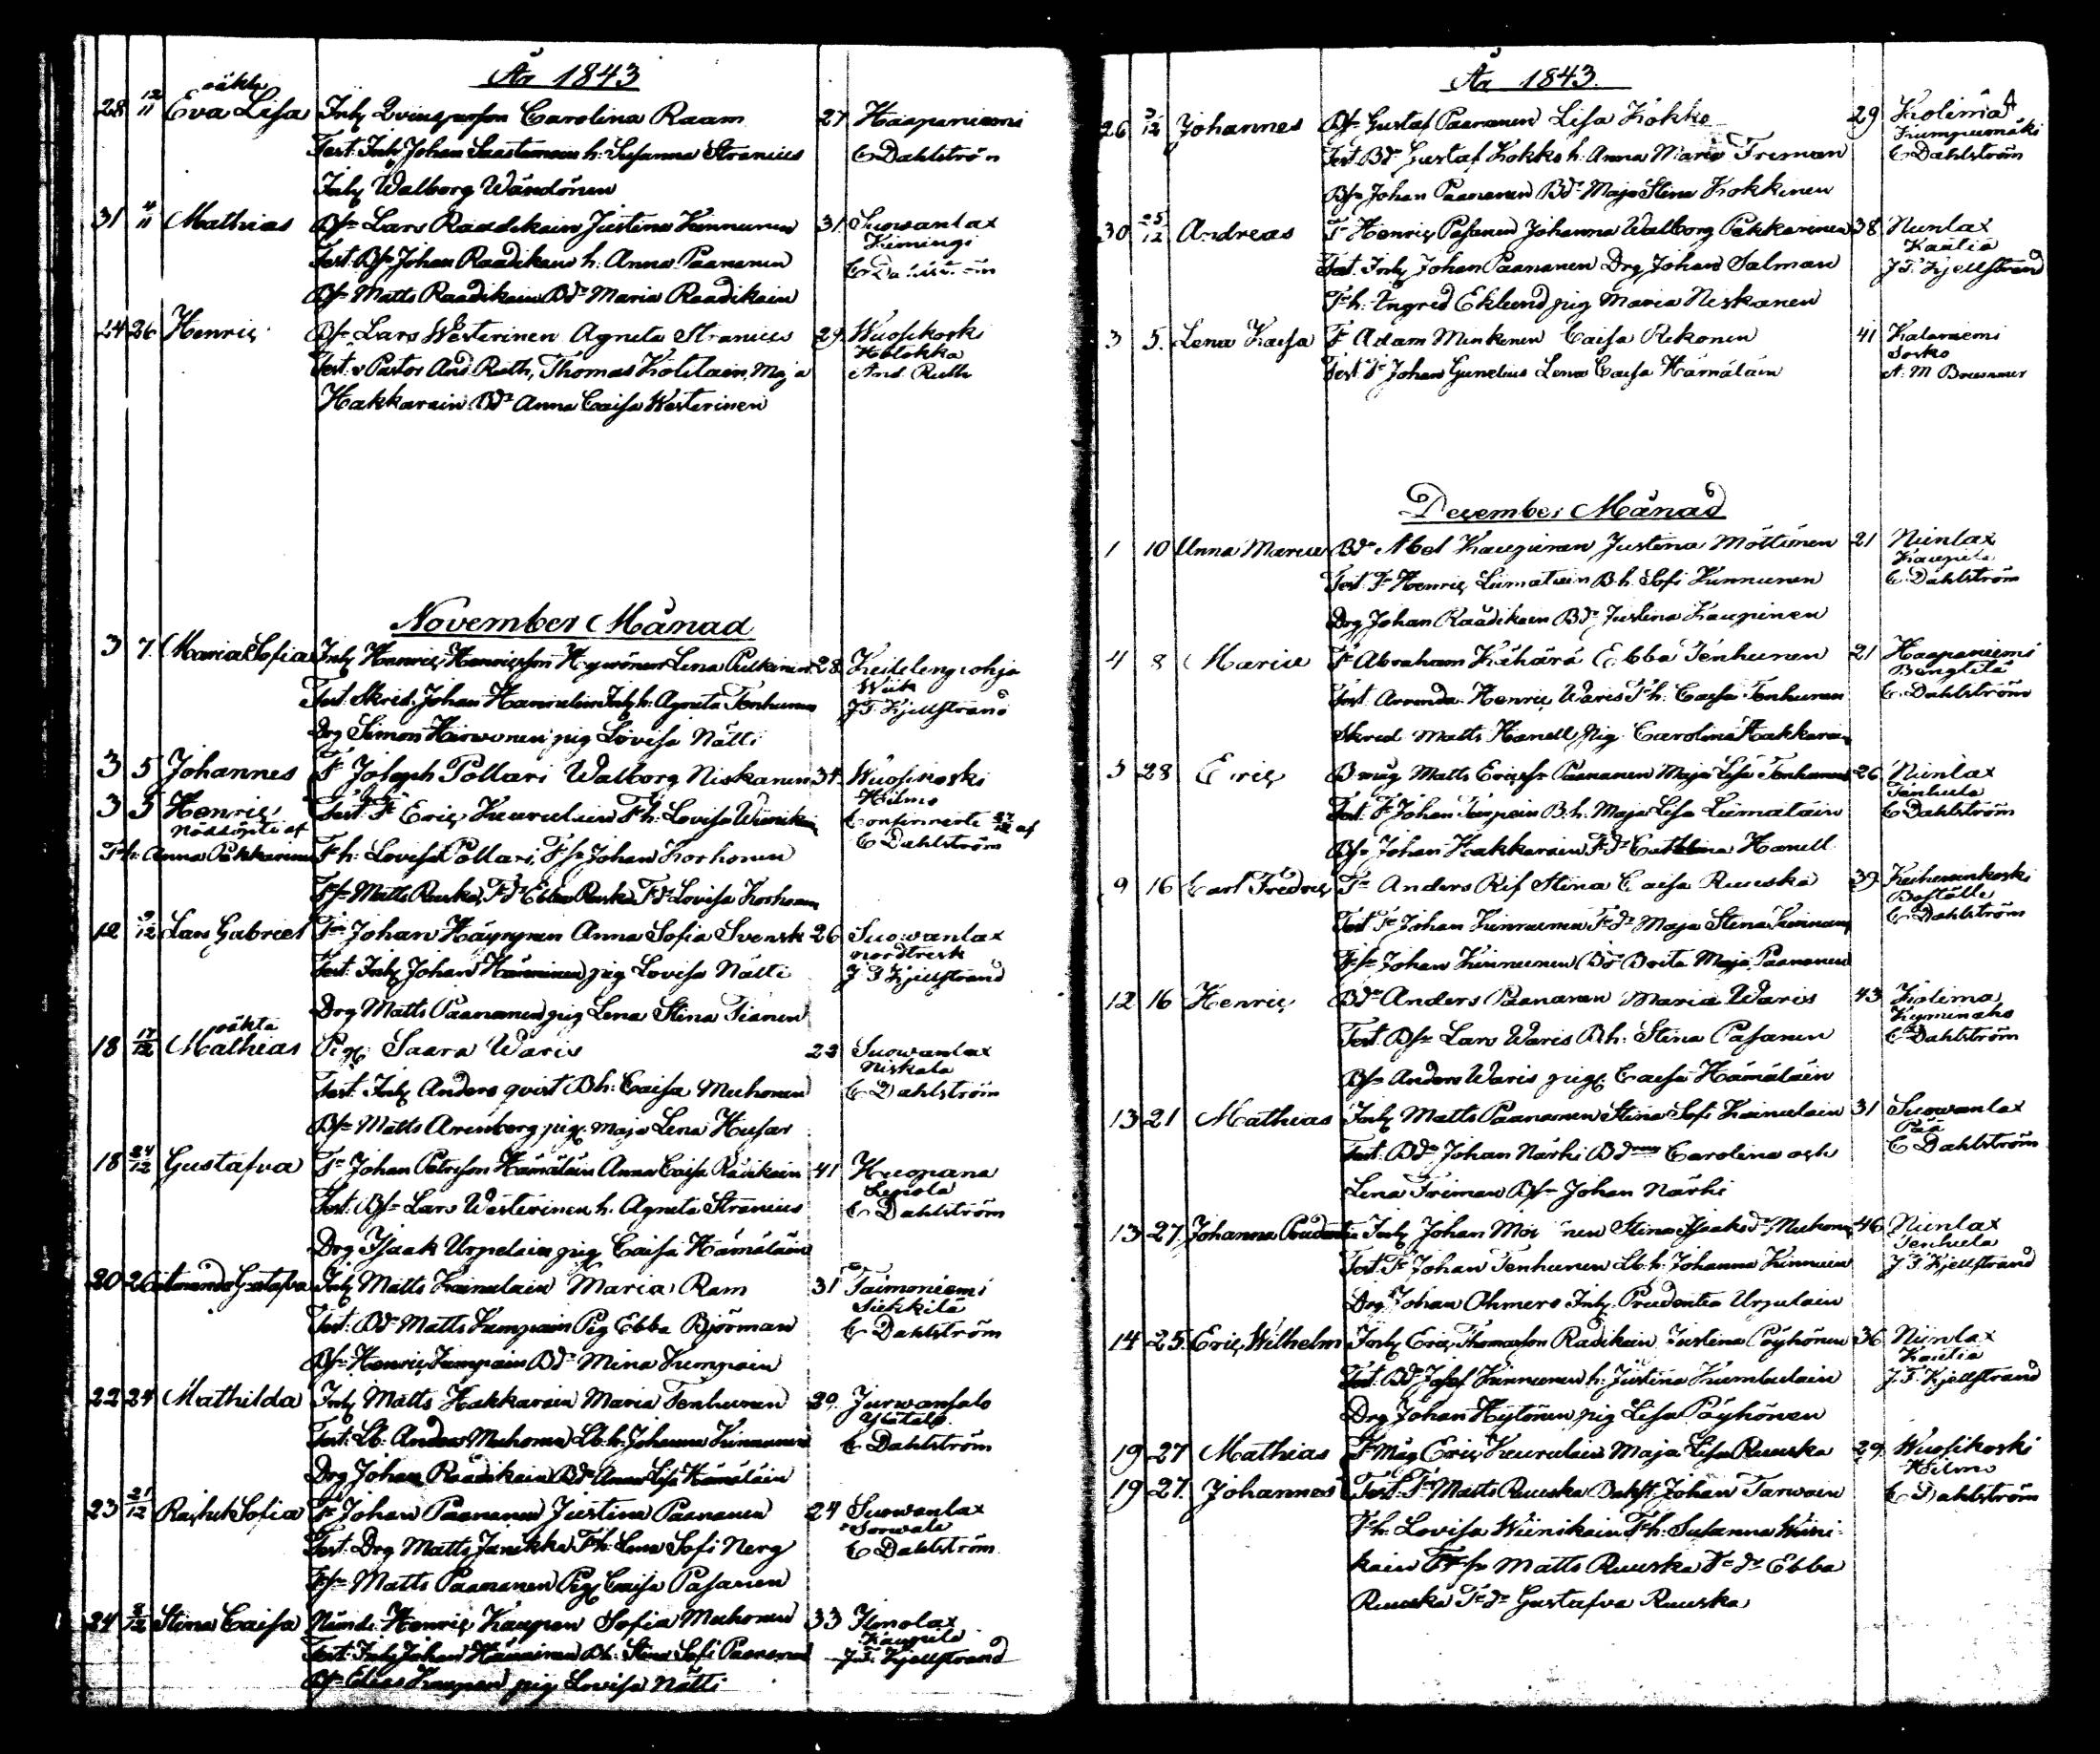 År 1843
oäkta
28 12/11 Eva Lisa Inh Qvinsperson Carolina Raam 27 Haapaniemi
Test: Inh Johan Saastamoin h: Susanna Stranius C Dahlström
Inh Walborg Wändönen
31 4/11 Mathias Bs Lars Raadikain Justina Kinnunen 31 Suowanlax
Kimingi
Test: Bs Johan Raadikain h: Anna Paananen
Bs Matts Raadikain Bdr Maria Raadikain
24 26 Henric Bs Lars Westerinen Agneta Stranius 29 Wuosikoski
Test: v Pastor And Ruth, Thomas Kolilain, Maja And. Ruth
Hakkarain Bdr Anna Caisa Westerinen
November Månad
3 7 Maria Sofia Inh Henric Henricsson Hywönen Lena Pulkinen 28 Keitelenpohja
Wiik
Test: Skred. Johan Inh h: Agneta Tenhunen J F Kjellstrand
Drg Simon Hirwonen pig Lovisa Nätti
3 5 Johannes F Joseph Pollari Walborg Niskanen 34 Wuosikoski
Hilmo
3 5 Henric Test: F Eric Keurulain Fh: Lovisa Wiinikain Confirmerte 27/12 af
Nöddöpte af C Dahlström
Fh: Anna Pekkarinen Fh: Lovisa Pollari, Fs Johan Korhonen
Fs Matts Ruuska, Fdr Ebba Ruuska Fdr Lovisa Korhonen
12 9/12 Lars Gabriel F Johan Häyrynen Anna Sofia Svensk 26 Suowanlax
nordtresk
Test: Inh Johan Hänninen pig Lovisa Nätti J F Kjellstrand
Drg Matts Paananen pig Lena Stina Tianen
oäkta
18 17/12 Mathias Pig: Saara Waris 22 Suowanlax
Niskala
Test: Inh Anders qvist Bh: Caisa Muhonen C Dahlström
Bs Matts Arenberg pig: Maja Lena Husar
18 24/12 Gustafva F Johan Petersson Hämäläin Anna Caisa Radikain 41 Huopana
Lepola
Test: Bs Lars Westerinen h. Agneta Stranius C Dahlström
Drg Isaak Urpelain pig Caisa Hämäläin
20 26 Amanda Gustafva Inh Matts Kainulain Maria Ram 31 Taimoniemi
Siekkilä
Test: Bd Matts Kumpain Pig Ebba Björman C Dahlström
Bs Henric Kumpain Bdr Mina Kumpain
22 24 Mathilda Inh Matts Hakkarain Maria Tenhunen 20 Jurwansalo
Test: Lb: Anders Muhonen Lb: h: Johanna Kinnunen C Dahlström
Drg Johan Raadikain Bdr Anna Lisa Hämäläin
23 21/12 Sofia F Johan Paananen Justina Paananen 24 Suowanlax
Sorwala
Test: Drg Matts Janikka Fh: Lena Sofi Nerg C Dahlström
Fs Matts Paananen Pig Caisa Pasanen
24 8/12 Stina Caisa Nämd: Henric Kaupen Sofia Muhonen 33 Ilmolax
Kaupila
Test: Inh Johan Hänninen Bh: Stina Sofi Paananen J. F. Kjellstrand
Bs Elias Kaupen pig Lovisa Nätti
År 1843.
26 3/12 Johannes Bs Gustaf Paananen Lisa Kokko 29 Kolima
Kumpumäki
Test: Bd Gustaf Kokko h. Anna Maria Friman C Dahlström
Bs Johan Paananen Bdr Maja Stina Kokkinen
30 25/12 Andreas F Henric Pasanen Johanna Walborg Pekkarinen 38 Nunlax
Kautia
Test: Inh Johan Paananen Drg Johan Salman J F. Kjellstrand
Fh: Ingrid Eklund pig Maria Niskanen
3 5. Lena Kaisa F Adam Minkinen Caisa Rekonen 41 Kalaniemi
Sorko
Test: F Johan Gunelius Lena Caisa Hämäläin
December Månad
1 10 Anna Maria Bd Abel Kaupinen Justina Möttönen 21 Nunlax
Kaupila
Test F Henric Limatain Bh. Sofi Kinnunen C Dahlström
Drg Johan Raadikain Bdr Justina Kaupinen
4 8 Maria F Abraham Kähärä Ebba Tenhunen 21 Haapaniemi
Bengtilä
Test: Arrenda. Henric Waris Fh: Caisa Tenhunen C. Dahlström
Skred Matts Hanell Pig Carolina Hakkarain
5 28 Eric B måg Matts Ericss Paananen Maja Lisa Tenhunen 26 Nunlax
Tenhula
Test: F Johan Bh. Maja Lisa Liimatain C Dahlström
Bs Johan Hakkarain Fdr Cathrina Hanell
9 16 Carl Fredric F Anders Rif Stina Caisa Ruuska 39 Keihärinkoski
Boställe
Test F Johan Kinnunen Fdr Maja Stina Kinnunen C Dahlström
Fs Johan Kinnunen Bd Brita Maja Paananen
12 16 Henric Bd Anders Paananen Maria Waris 43 Kolima
Kyminaho
Test: Bs Lars Waris Bh: Stina Pasanen C Dahlström
Bs Anders Waris pig: Caisa Hämäläin
13 21 Mathias Inh Matts Paananen Stina Sofi Kainulain 31 Suowanlax
Pää
Test: Bd Johan Närhi Bdmag Carolina och C Dahlström
Lena Friman Bs Johan Närhi
13 27 Johanna Prudentia Inh Johan Stina Isaksdr Muhonen 46 Nunlax
Tenhula
Test: F Johan Tenhunen Lb. h. Johanna Kinnuin J. F. Kjellstrand
Drg Johan Ohmero Inh. Prudentia Urpulain
14 25 Eric Wilhelm Inh Eric Thomasson Radikain Justina Pöyhönen 36 Nunlax
Kautia
Test: Bd Josef Kinnunen h. Justina Kumbulain J. F. Kjellstrand
Drg Johan Hytönen pig Lisa Pöyhönen
19 27 Mathias F måg Eric Keurulain Maja Lisa Ruuska 29 Wuosikoski
Hilmo
19 27. Johannes Test: F Matts Ruuska Johan Tarwain C Dahlström
Fh: Lovisa Wiinikain Fh: Susanna Wiini-
kain Fs Matts Ruuska Fdr Ebba
Ruuska Fdr Gustafva Ruuska